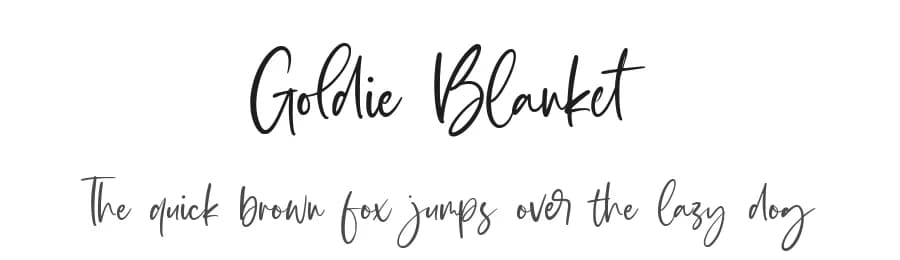 Goldie Blanket
The quick brown fox jumps over the lazy dog